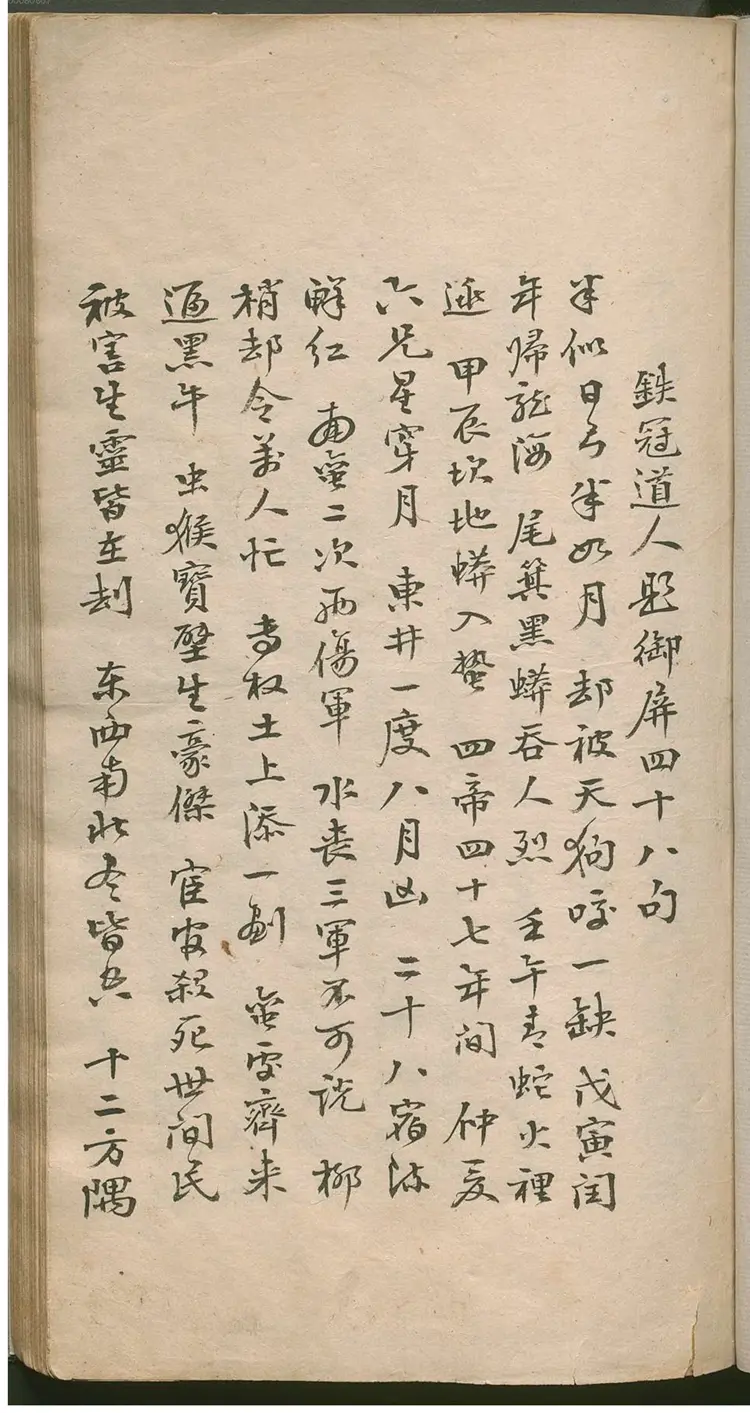 鉄冠道人題御屏四十八句
半似日号半如月 却被天狗咬一缺 戊寅闰
年帰龍海 尾箕黑蟒吞人烈 壬午青蛇火裡
逃 甲辰坎地蟒入蛰 四帝四十七年间 仲夏
六兄星穿月 東井一度八月凶 二十八宿
鮮红 二次两傷軍 水丧三軍不可说 柳
梢却令萬人忙 当权土上添一剑 齊来
逼黑牛 虫猴寶壁生豪傑 宦官殺死世间民
被害生靈皆在刼 东西南北冬皆 十二方隅